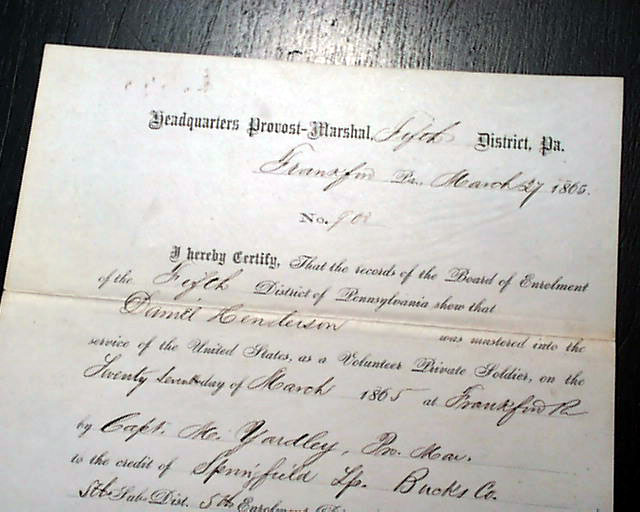 Headquarters Provost-Marshal, Fifth District, Pa.
Frankford Pa., March 27 1865.
No. 902
I hereby Certify, That the records of the Board of Enrolment
of the Fifth District of Pennsylvania show that
Daniel Henderson was mustered into the
service of the United States, as a Volunteer Private Soldier, on the
Twenty Seventh day of March 1865 at Frankford Pa
by Capt. M. Yardley, Pro. Mar.
to the credit of Springfield Tp. Bucks Co.
5th Sub-Dist. 5th Enrolment